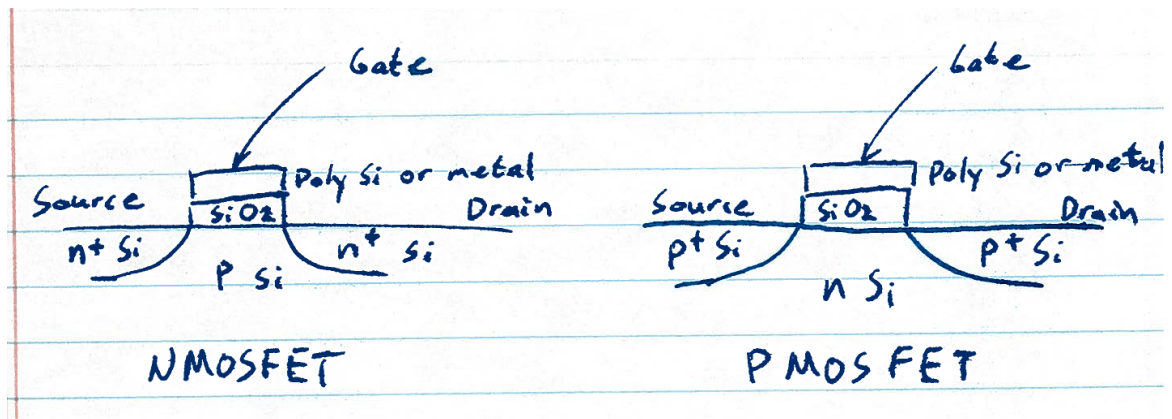 Gate
Poly Si or metal
Source
SiO2
Drain
n+ Si
n+ Si
P Si
NMOSFET
Gate
Poly Si or metal
Source
SiO2
Drain
p+ Si
p+ Si
n Si
PMOSFET